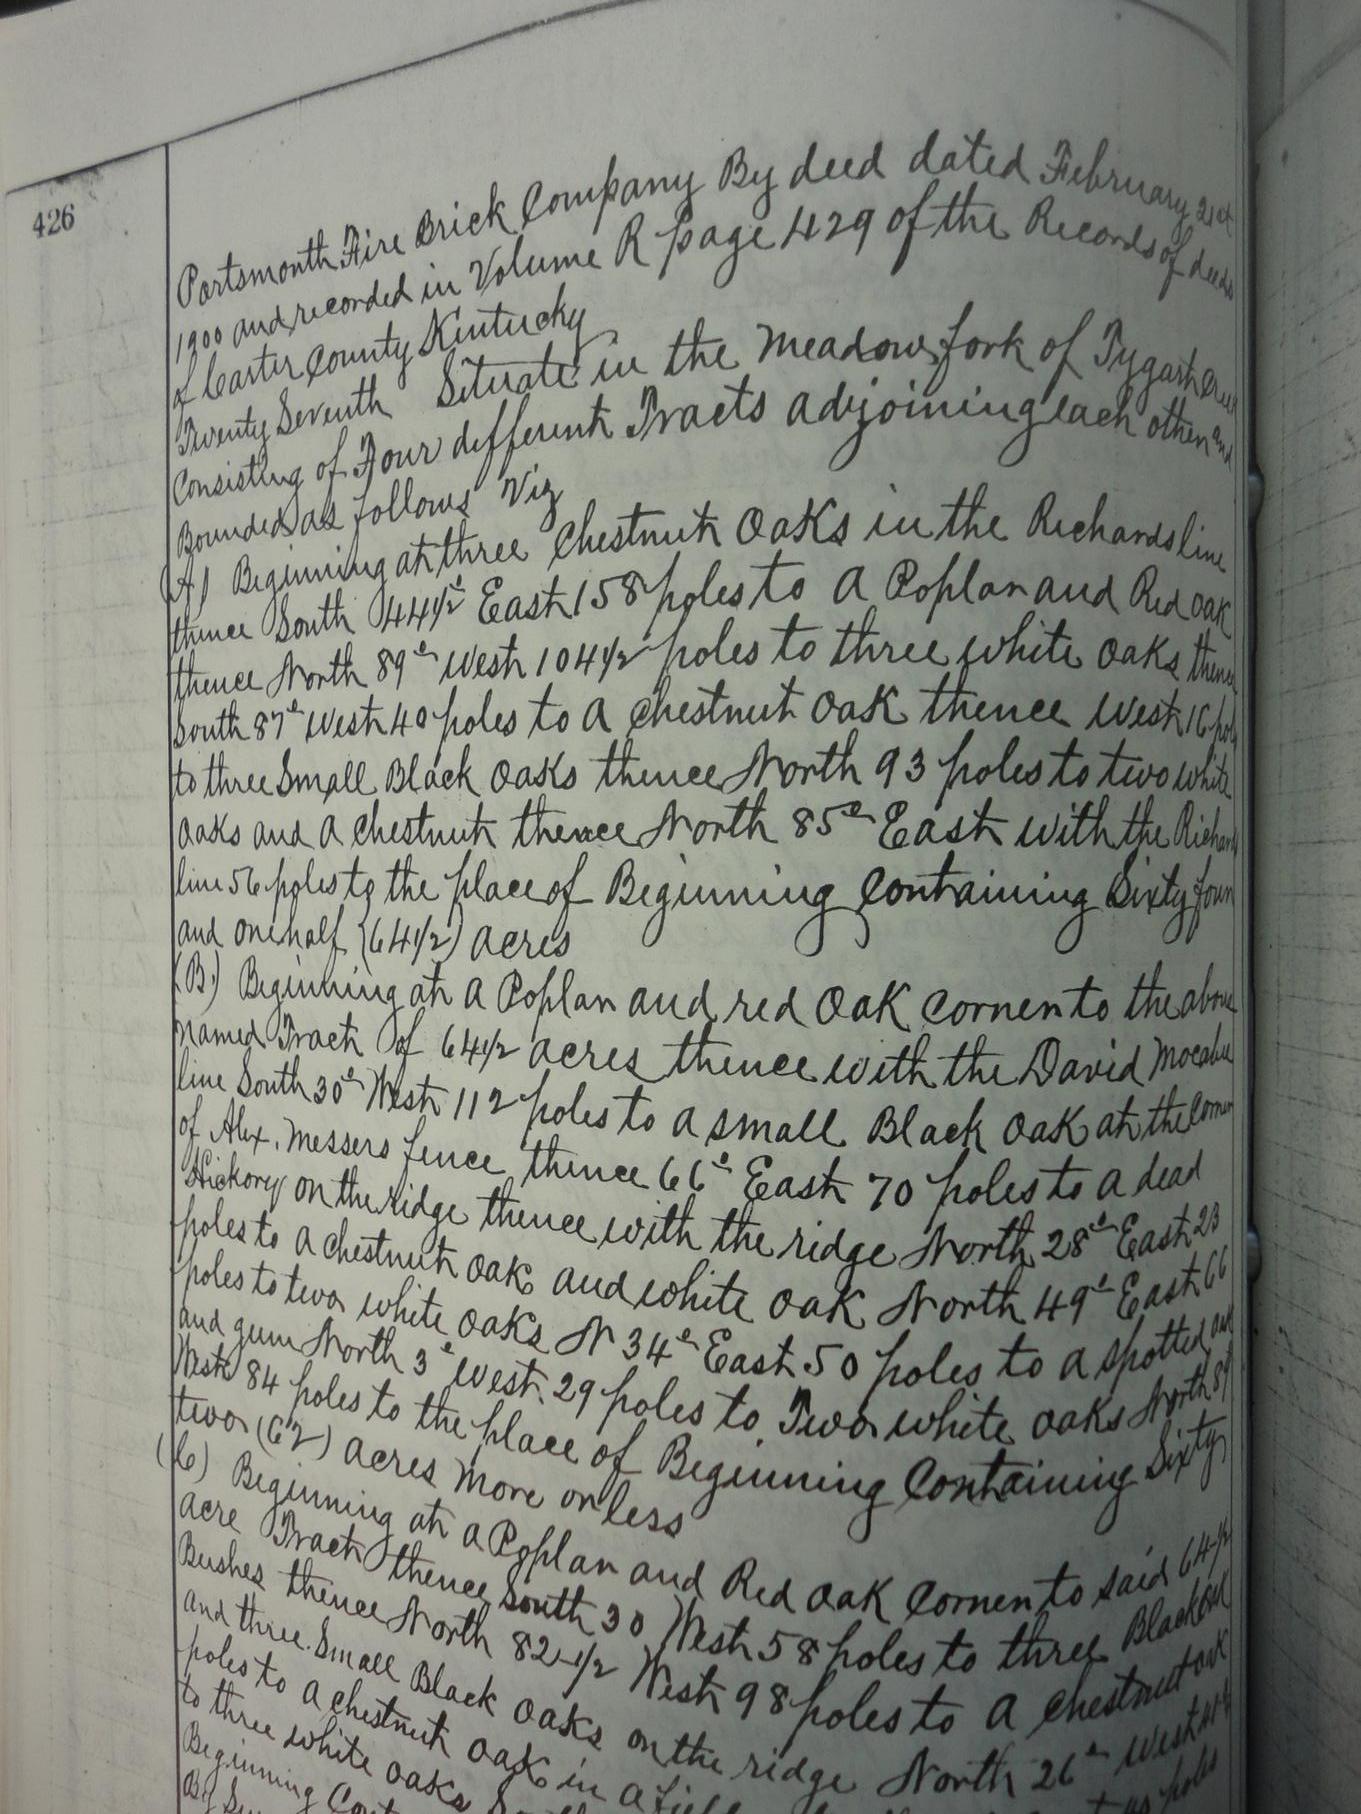 426
Portsmouth Fire Brick Company By deed dated February 21st
1900 and recorded in Volume R page 429 of the Records of deeds
of Carter County Kentucky
Twenty Seventh Situate in the Meadow fork of Tygarts Creek
Consisting of Four different Tracts adjoining each other and
Bounded as follows Viz
(A) Beginning at three Chestnut Oaks in the Richards line
thence South 44½° East 158 poles to a Poplar and Red Oak
thence North 89° West 104½ poles to three white oaks thence
South 87° West 40 poles to a Chestnut Oak thence West 16 poles
to three Small Black Oaks thence North 93 poles to two white
oaks and a chestnut thence North 85° East with the Richards
line 56 poles to the place of Beginning Containing Sixty four
and one half (64½) acres
(B.) Beginning at a Poplar and red Oak Corner to the above
named Tract of 64½ acres thence with the David Mocabee
line South 30° West 112 poles to a small Black Oak at the Corner
of Alex. Messers fence thence 66° East 70 poles to a dead
Hickory on the ridge thence with the ridge North 28° East 23
poles to a chestnut oak and white oak North 49° East 66
poles to two white oaks N 34° East 50 poles to a spotted oak
and gum North 3° West 29 poles to Two white oaks North 89
West 84 poles to the place of Beginning Containing Sixty
two (62) acres more or less
(C) Beginning at a Poplar and Red Oak Corner to said 64½
acre Tract thence South 30 West 58 poles to three Black oak
Bushes thence North 82½ West 98 poles to a chestnut oak
and three Small Black Oaks on the ridge North 26° West
poles to a chestnut oak in a field poles
to three white oaks
Beginning